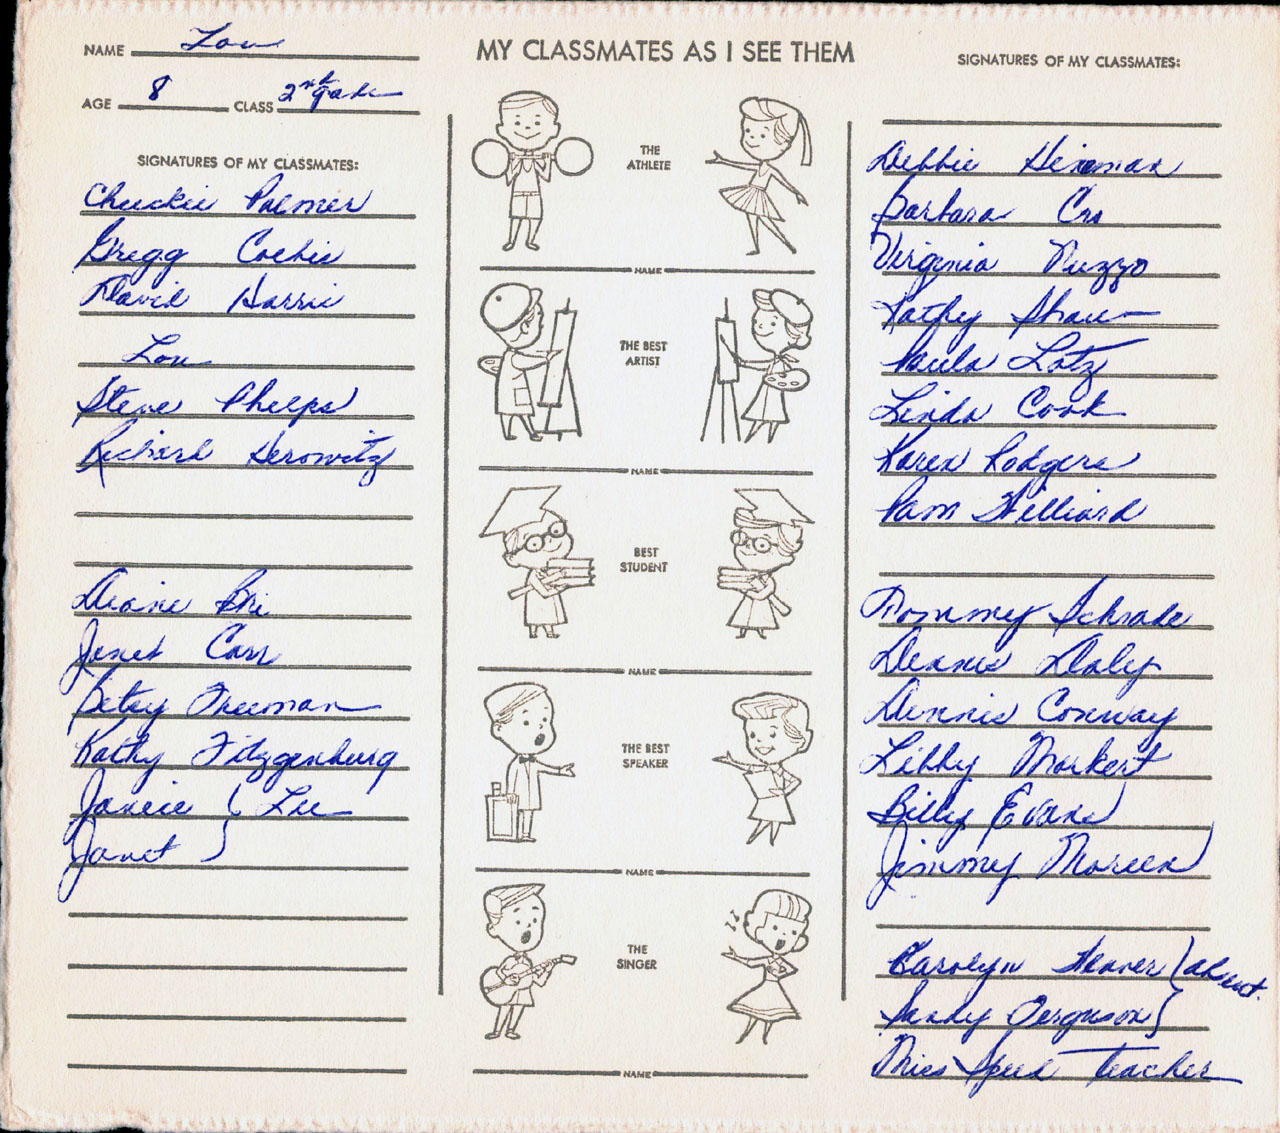 NAME Lou
AGE 8 CLASS 2nd grade
SIGNATURES OF MY CLASSMATES:
Chuckie Palmer
Gregg Cochis
David Harris
Lou
Steve Phelps
Richard Herowitz
Diane Bri
Janet Carr
Betsy Freeman
Kathy Fitzgenburg
Janice } Lee
Janet }
MY CLASSMATES AS I SEE THEM
THE ATHLETE
NAME
THE BEST ARTIST
NAME
BEST STUDENT
NAME
THE BEST SPEAKER
NAME
THE SINGER
NAME
SIGNATURES OF MY CLASSMATES:
Debbie Hinman
Barbara Cro
Virginia Nuzzo
Kathy Shaw
Paula Lotz
Linda Cook
Karen Rodgers
Pam Hilliard
Tommy Schrade
Dennis Daly
Dennis Conway
Libby Markert
Billy Evans }
Jimmy Moreen }
Carolyn } absent.
Sandy Ferguson }
Miss Speed teacher